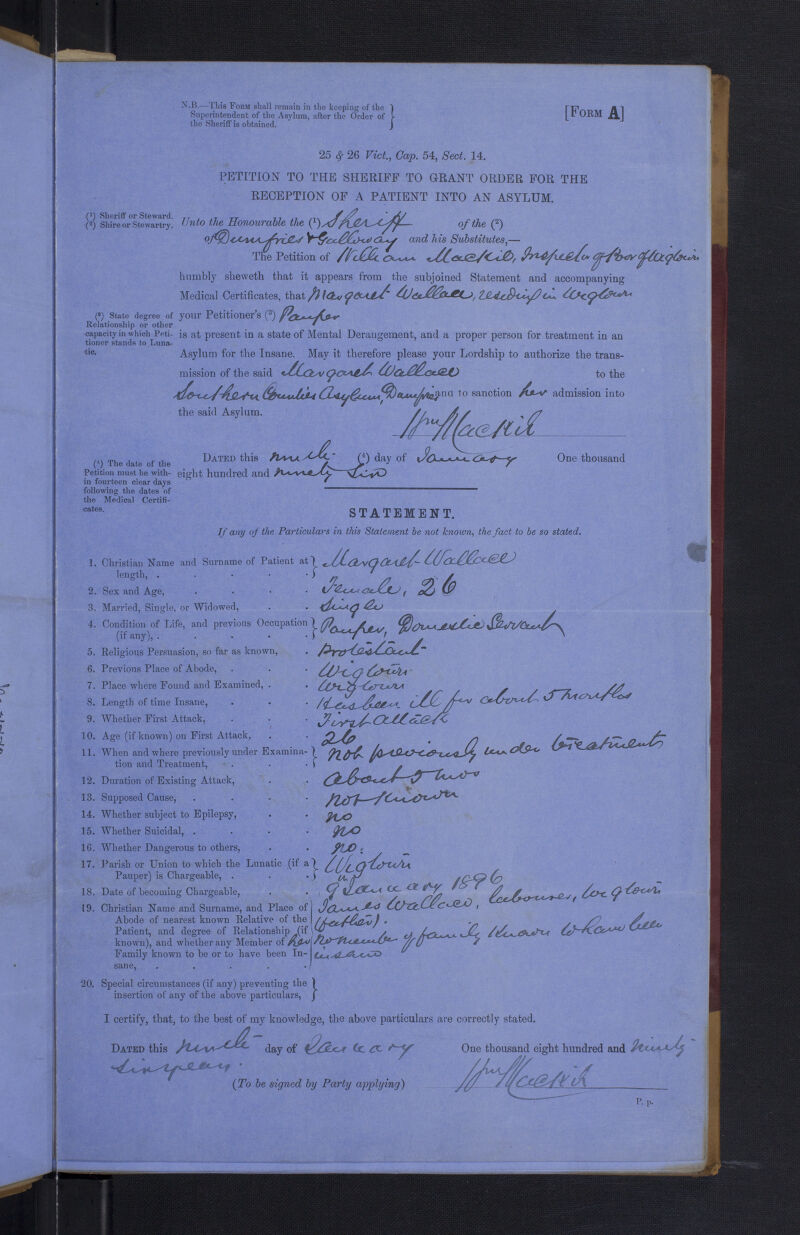 N.B.—This Form shall remain in the keeping of the
Superintendent of the Asylum, after the Order of
the Sheriff is obtained.
[Form A]
25 & 26 Vict., Cap. 54, Sect. 14.
PETITION TO THE SHERIFF TO GRANT ORDER FOR THE
RECEPTION OF A PATIENT INTO AN ASYLUM.
(¹) Sheriff or Steward.
(²) Shire or Stewartry.
Unto the Honourable the (¹) Sheriff of the (²)
of Dumfries & Galloway and his Substitutes,—
The Petition of William MacKil, Inspector of Poor of Wigtown
humbly sheweth that it appears from the subjoined Statement and accompanying
Medical Certificates, that Margaret Wallace, residing in Wigtown
(³) State degree of
Relationship or other
capacity in which Peti-
tioner stands to Luna-
tic.
your Petitioner's (³) Pauper
is at present in a state of Mental Derangement, and a proper person for treatment in an
Asylum for the Insane. May it therefore please your Lordship to authorize the trans-
mission of the said Margaret Wallace to the
Southern Counties Asylum, Dumfries and to sanction her admission into
the said Asylum.
Wm MacKil
(⁴) The date of the
Petition must be with-
in fourteen clear days
following the dates of
the Medical Certifi-
cates.
Dated this ninth (⁴) day of January One thousand
eight hundred and ninety Six
STATEMENT.
If any of the Particulars in this Statement be not known, the fact to be so stated.
1. Christian Name and Surname of Patient at length, . Margaret Wallace
2. Sex and Age, Female, 26
3. Married, Single, or Widowed, Single
4. Condition of Life, and previous Occupation (if any), . Pauper, Domestic Servant
5. Religious Persuasion, so far as known, Protestant
6. Previous Place of Abode, Wigtown
7. Place where Found and Examined, Wigtown
8. Length of time Insane, Has been ill for about 5 months
9. Whether First Attack, First attack
10. Age (if known) on First Attack, 26
11. When and where previously under Examina-tion and Treatment, Not previously under treatment
12. Duration of Existing Attack, About 5 mos
13. Supposed Cause, Not known
14. Whether subject to Epilepsy, no
15. Whether Suicidal, no
16. Whether Dangerous to others, no.
17. Parish or Union to which the Lunatic (if a Pauper) is Chargeable, Wigtown
18. Date of becoming Chargeable, 9 January 1896
19. Christian Name and Surname, and Place of James Wallace, labourer, Wigtown
Abode of nearest known Relative of the (father).
Patient, and degree of Relationship (if
known), and whether any Member of her no member of family known to have been
Family known to be or to have been In- insane
sane,
20. Special circumstances (if any) preventing the
insertion of any of the above particulars,
I certify, that, to the best of my knowledge, the above particulars are correctly stated.
Dated this ninth day of January One thousand eight hundred and ninety
six years.
(To be signed by Party applying) Wm MacKil
P. p.